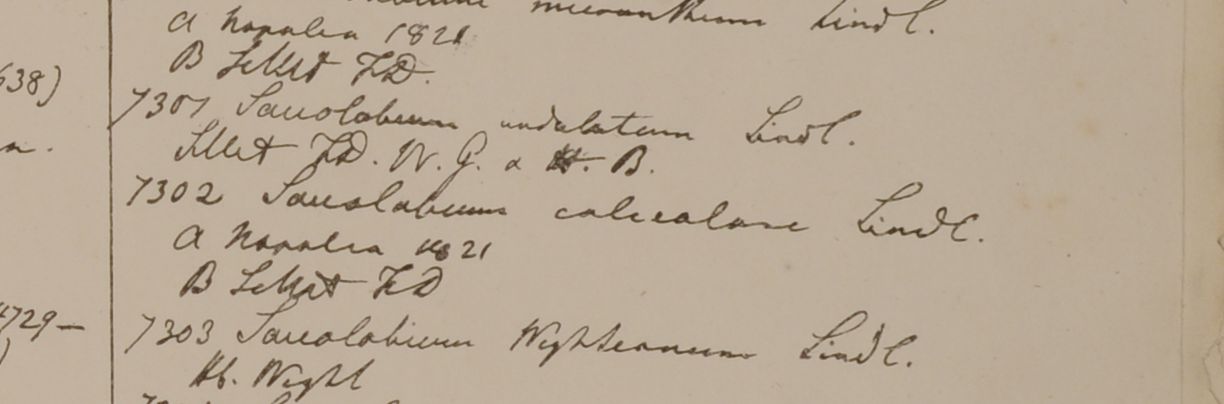 micranthum Lindl.
a Napalia 1821
B Sillet F.D.
638)
7301 Saccolabium undulatum Lindl.
n.
Sillet F.D. W. G. & H. B.
7302 Saccolabium calceolare Lindl.
a Napalia 1821
B Sillet F D
4729 —
7303 Saccolabium Wightianum Lindl.
)
Hb. Wight